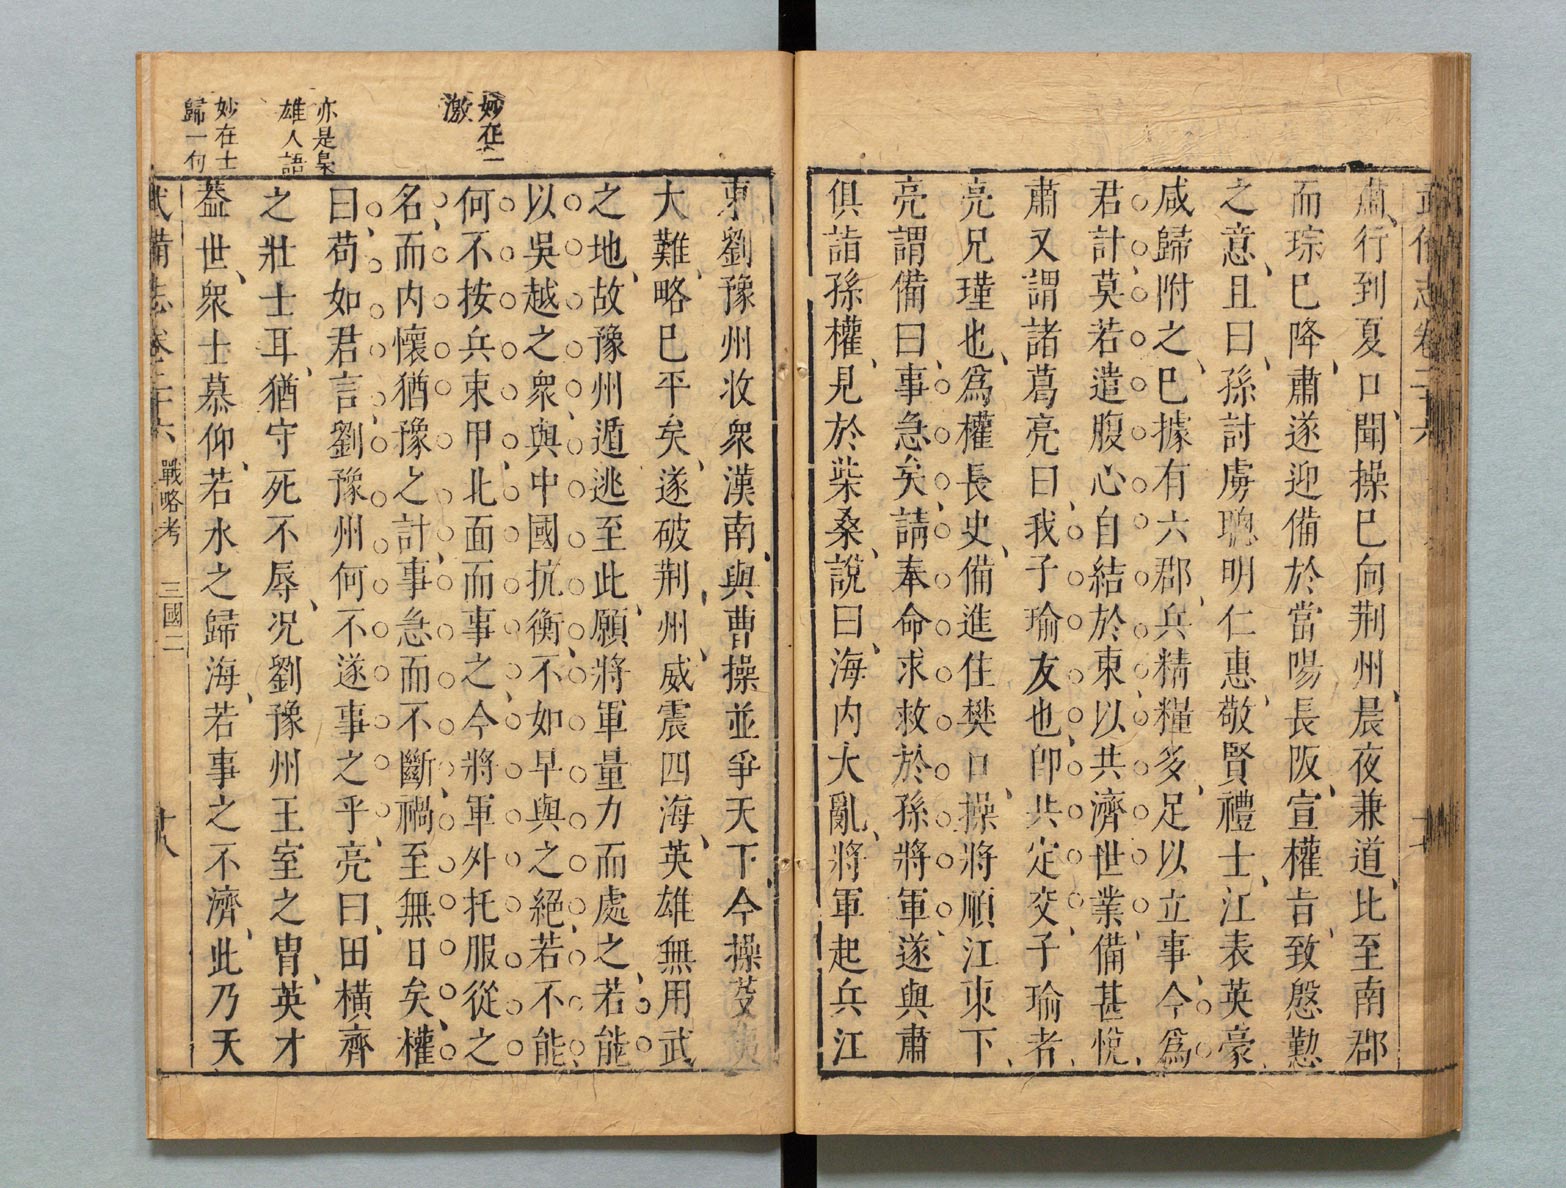 武備志卷二十六
肅行到夏口聞操已向荆州晨夜兼道比至南郡
而琮已降肅遂迎備於當陽長阪宣權旨致慇懃
之意且曰孫討虜聰明仁惠敬賢禮士江表英豪
咸歸附之已據有六郡兵精糧多足以立事今爲
君計莫若遣腹心自結於東以共濟世業備甚悅
肅又謂諸葛亮曰我子瑜友也卽共定交子瑜者
亮兄瑾也爲權長史備進住樊口操將順江東下
亮謂備曰事急矣請奉命求救於孫將軍遂與肅
俱詣孫權見於柴桑說曰海内大亂將軍起兵江
東劉豫州收衆漢南與曹操並爭天下今操芟夷
大難略已平矣遂破荆州威震四海英雄無用武
之地故豫州遁逃至此願將軍量力而處之若能
以吳越之衆與中國抗衡不如早與之絕若不能
何不按兵束甲北面而事之今將軍外托服從之
名而内懷猶豫之計事急而不斷禍至無日矣權
曰苟如君言劉豫州何不遂事之乎亮曰田橫齊
之壯士耳猶守死不辱况劉豫州王室之胄英才
蓋世衆士慕仰若水之歸海若事之不濟此乃天
妙在二
激
亦是梟
雄人語
妙在士
歸一句
武備志卷二十六 戰略考 三國二 十八